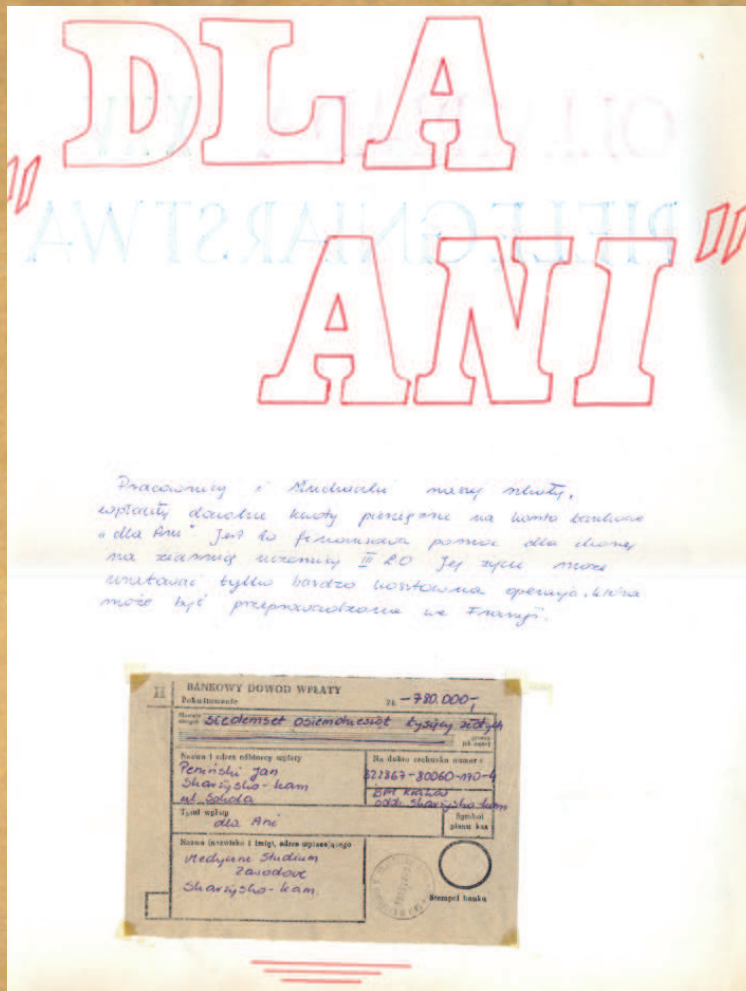 "DLA
ANI"
Pracownicy i Słuchaczki naszej szkoły,
wpłaciły dowolne kwoty pieniężne na konto bankowe
"dla Ani" Jest to finansowa pomoc dla chorej
na ziarnicę uczennicy III LO Jej życie może
uratować tylko bardzo kosztowna operacja, która
może być przeprowadzona we Francji.
II BANKOWY DOWÓD WPŁATY
Pokwitowanie zł -780.000-,
Słownie złotych siedemset osiemdziesiąt tysięcy złotych
Nazwa i adres odbiorcy wpłaty
Peniński Jan
Skarżysko-Kam
ul. Szkolna
Na dobro rachunku numer:
322867-80060-170-4
BPH Kraków
oddz. Skarżysko-Kam
Tytuł wpłaty
dla Ani
Symbol planu kas
Nazwa (nazwisko i imię), adres wpłacającego
Medyczne Studium
Zawodowe
Skarżysko-Kam.
Stempel banku
OLIMPIADA
PIELĘGNIARSTWA